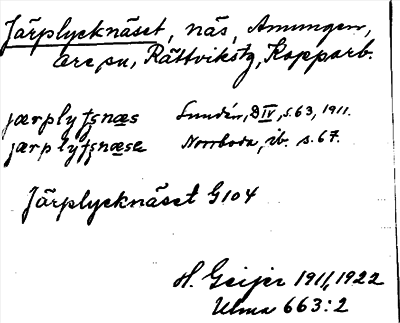 Järplycknäset, näs, Amungen,
Ore sn, Rättvikstg, Kopparb.
jærplyſʒnæs Lundén, D IV, s. 63, 1911.
jærplyſʒnæse Norrboda, ib. s. 67.
Järplycknäset G104
H. Geijer 1911, 1922
Ulma 663:2